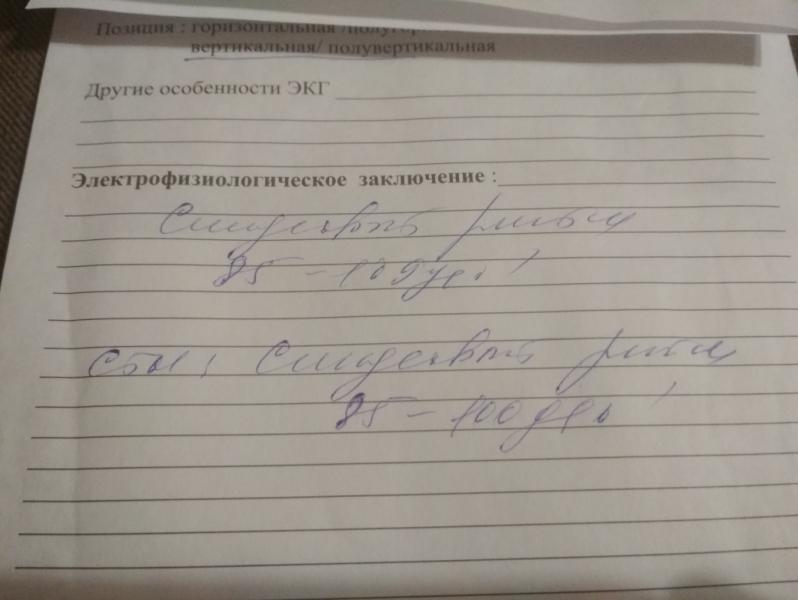 Позиция : горизонтальная /полугор
вертикальная/ полувертикальная
Другие особенности ЭКГ
Электрофизиологическое заключение :
Синусовый ритм
85 – 109 уд.'
Синусовый ритм
85 – 100 уд.'